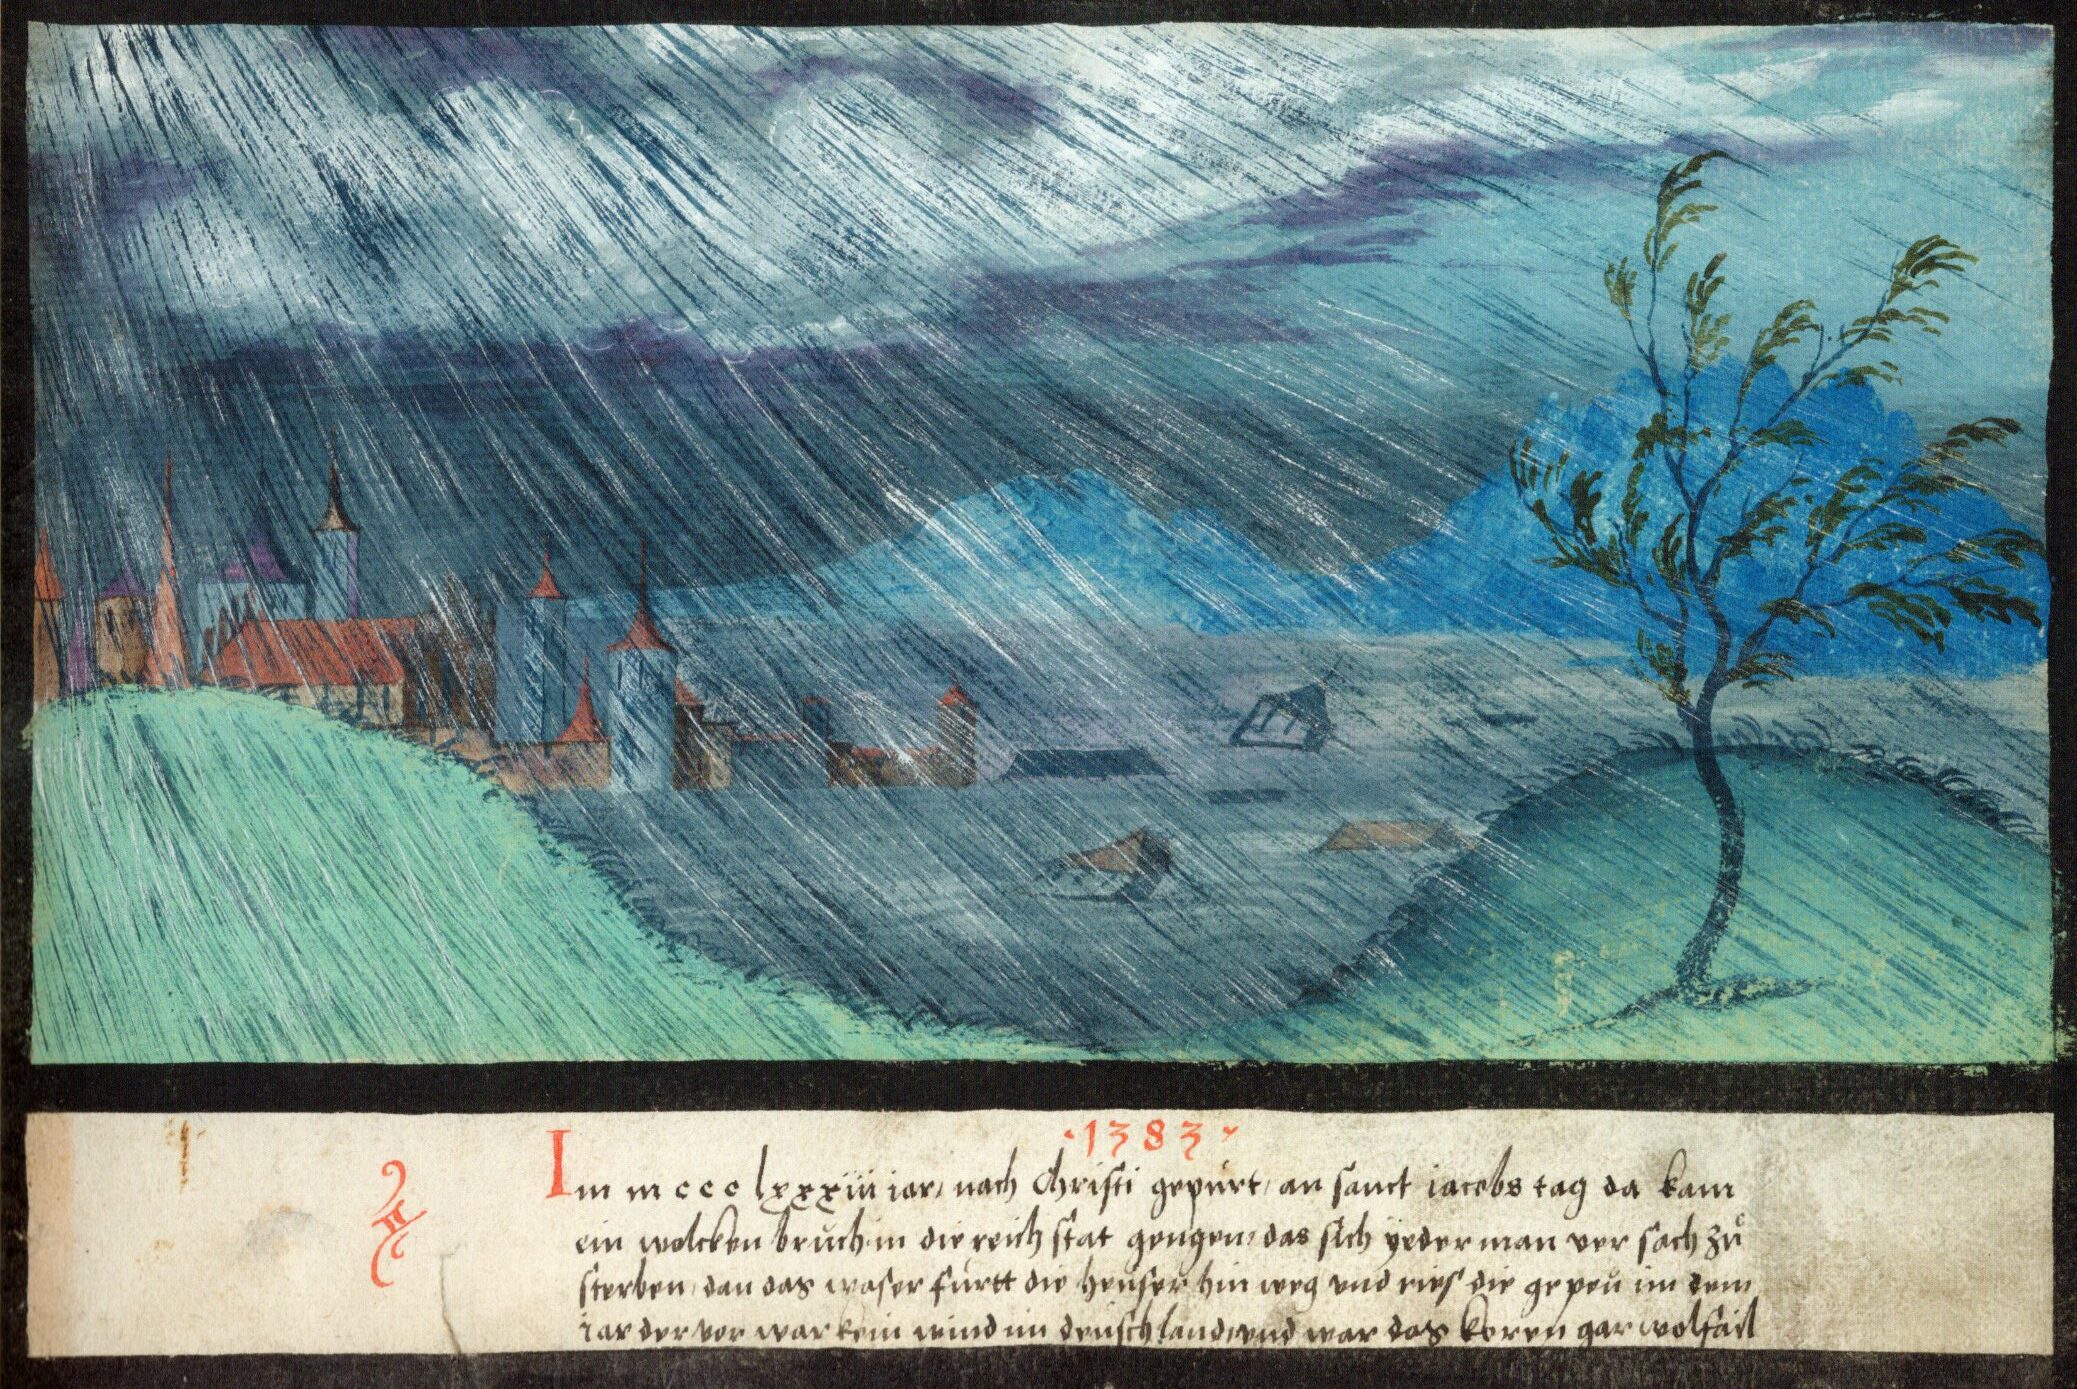 ·1383·
Im mccclxxxiii iar, nach Christi gepurt, an sanct iacobs tag da kam
ein wolcken bruch in die reich stat gengen, das sich yederman ver sach zů
sterben, dan das waser furtt die heuser hin weg vnd ries die gepeu im dem
iar der vor war kein wind im deuschland vnd war das koren gar wolfail